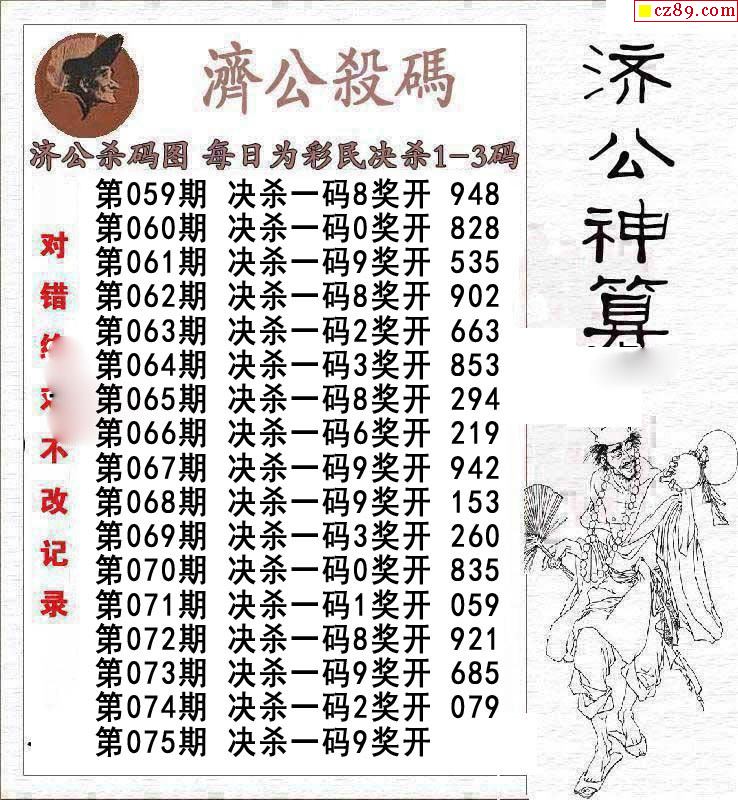 cz89.com
濟公殺碼
济公杀码图 每日为彩民决杀1-3码
第059期 决杀一码8奖开 948
第060期 决杀一码0奖开 828
第061期 决杀一码9奖开 535
第062期 决杀一码8奖开 902
第063期 决杀一码2奖开 663
第064期 决杀一码3奖开 853
第065期 决杀一码8奖开 294
第066期 决杀一码6奖开 219
第067期 决杀一码9奖开 942
第068期 决杀一码9奖开 153
第069期 决杀一码3奖开 260
第070期 决杀一码0奖开 835
第071期 决杀一码1奖开 059
第072期 决杀一码8奖开 921
第073期 决杀一码9奖开 685
第074期 决杀一码2奖开 079
第075期 决杀一码9奖开
对错不改记录
济公神算